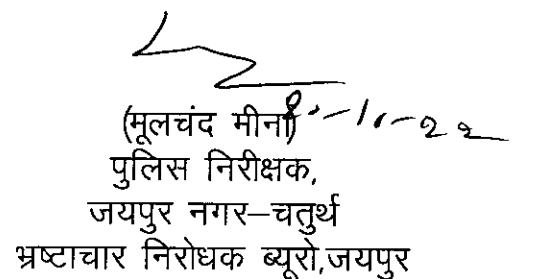 (मूलचंद मीना)
पुलिस निरीक्षक,
जयपुर नगर–चतुर्थ
भ्रष्टाचार निरोधक ब्यूरो,जयपुर